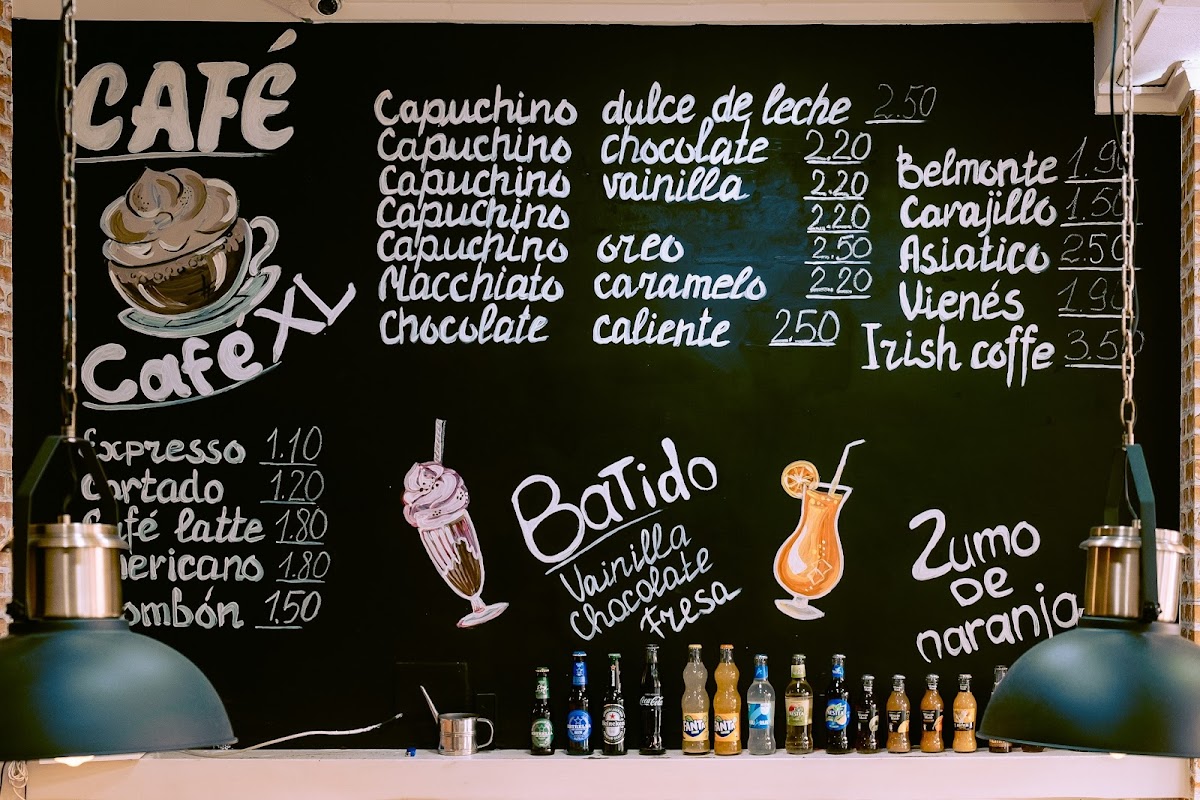 CAFÉ
Café XL
Expresso 1.10
Cortado 1.20
Café latte 1.80
Americano 1.80
Bombón 1.50
Capuchino dulce de leche 2.50
Capuchino chocolate 2.20
Capuchino vainilla 2.20
Capuchino 2.20
Capuchino oreo 2.50
Macchiato caramelo 2.20
Chocolate caliente 2.50
Belmonte 1.90
Carajillo 1.50
Asiatico 2.50
Vienés 1.90
Irish coffe 3.50
BaTido
Vainilla
chocolate
Fresa
Zumo
De
naranja
Heineken
Coca-Cola
FANTA
FANTA